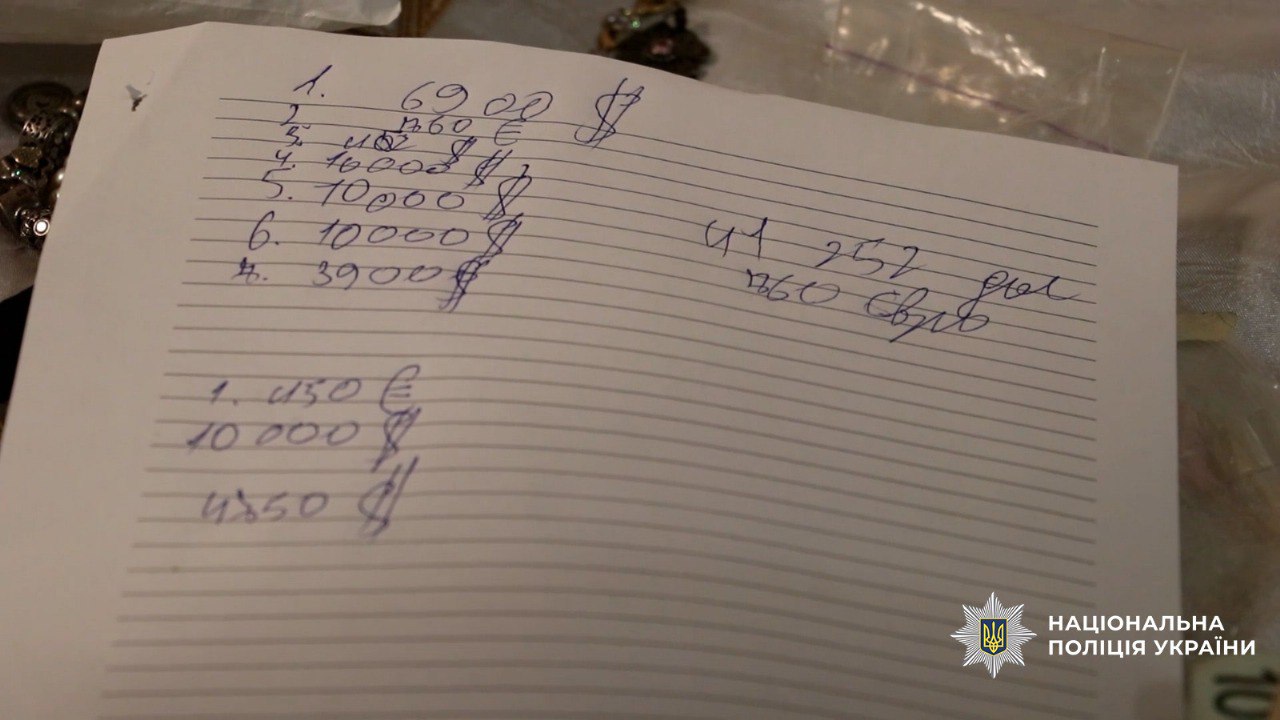 1. 6900 $
2. 760 €
3. $
4. 10000 $
5. 10000 $
6. 10000 $
7. 3900 $
41 252 дол
760 Євро
1. 450 €
10 000 $
$
НАЦІОНАЛЬНА
ПОЛІЦІЯ УКРАЇНИ
10